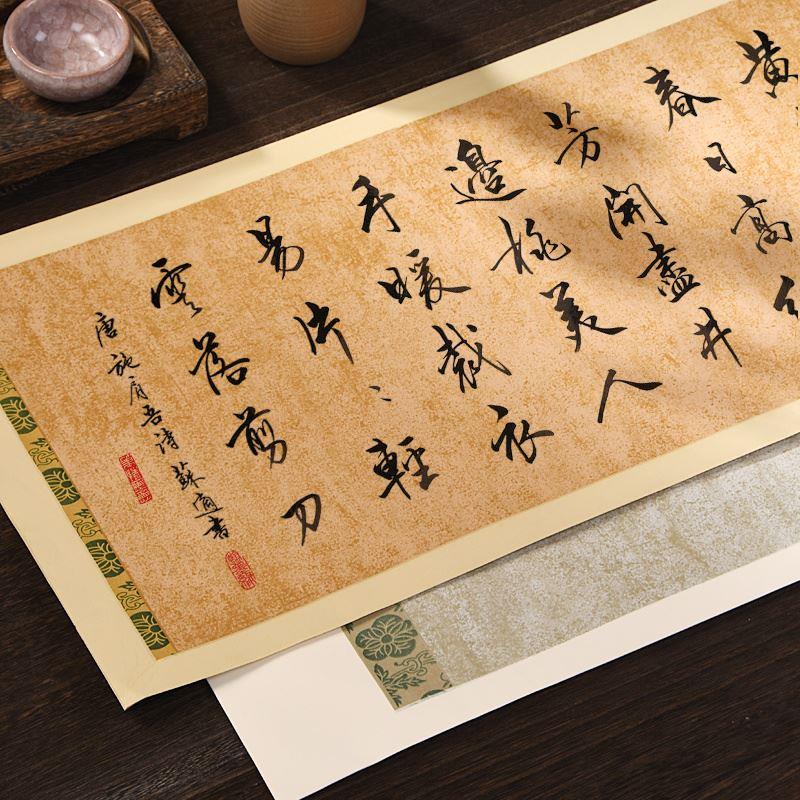 黃
春日高
芳開盡井
邊桃美人
手暖裁衣
易片〻輕
雲落剪刀
唐施肩吾詩蘇適書